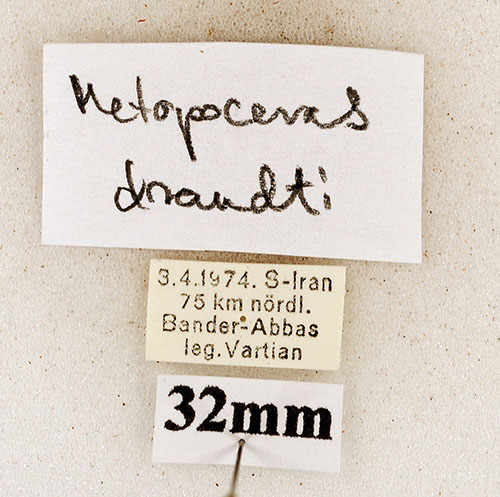 Metopoceras
brandti
3.4.1974. S-Iran
75 km nördl.
Bander-Abbas
leg. Vartian
32mm